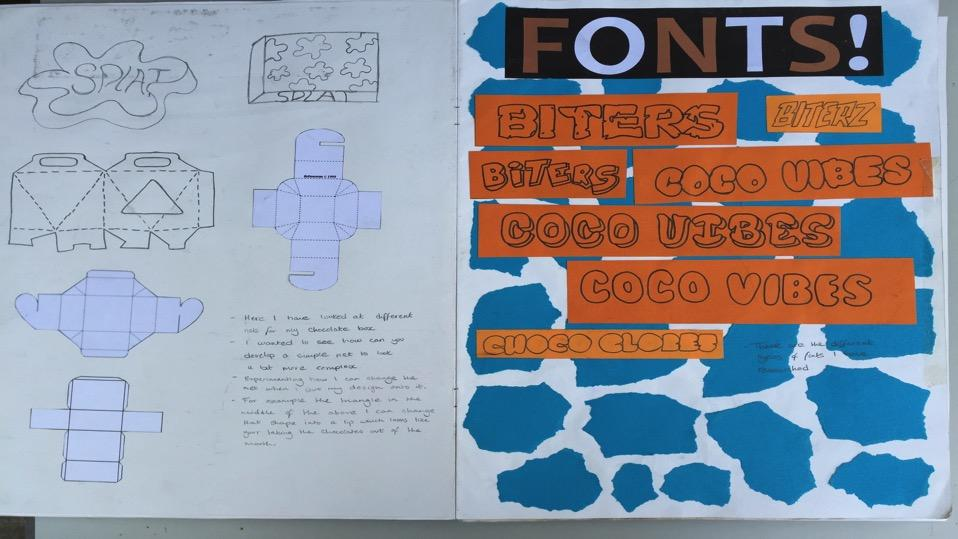 SPLAT
SPLAT
- Here I have looked at different
nets for my chocolate box.
- I wanted to see how can you
develop a simple net to look
a bit more complex
- Experimenting how I can change the
net when I give my design onto it.
- For example the triangle in the
middle of the above I can change
that shape into a lip which looks like
your taking the chocolates out of the
mouth.
FONTS!
BITERS
BITERZ
BiTERS
COCO VIBES
COCO VIBES
COCO VIBES
CHOCO GLOBES
- These are the different
types of fonts I have
researched